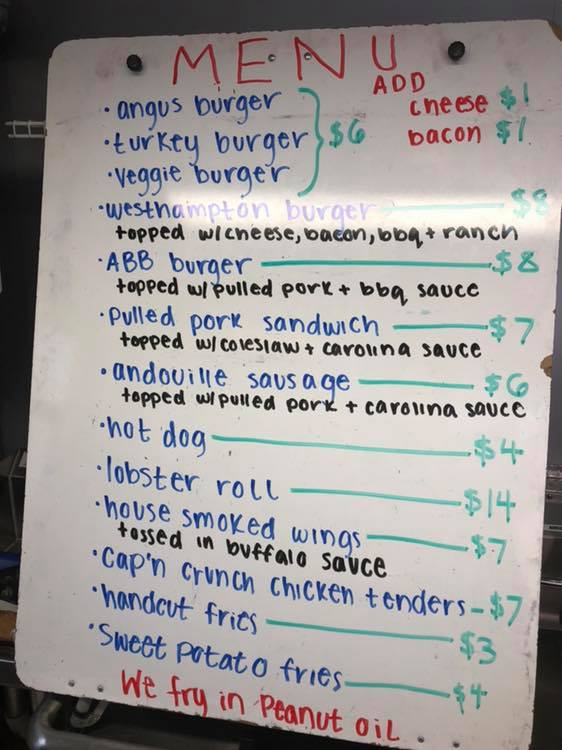 MENU
ADD
cheese $1
bacon $1
• angus burger
• turkey burger $6
• veggie burger
• westhampton burger $8
topped w/cheese, bacon, bbq + ranch
• ABB burger $8
topped w/pulled pork + bbq sauce
• pulled pork sandwich $7
topped w/coleslaw + carolina sauce
• andouille sausage $6
topped w/pulled pork + carolina sauce
• hot dog $4
• lobster roll $14
• house smoked wings $7
tossed in buffalo sauce
• cap'n crunch chicken tenders - $7
• handcut fries $3
• sweet potato fries $4
We fry in Peanut oil